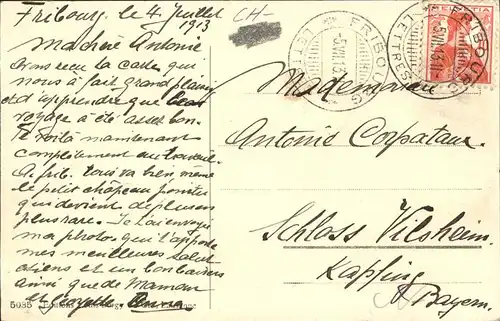 Fribourg, le 4 Juillet
1913
CH
Ma chère Antonie
avons recu la carte qui
nous à fait grand plaisir
et d'apprendre que
voyage à été assez bon.
Te voilà maintenant
complètement au travail
A frib. tous va bien, même
le petit chapeau pointu
qui devient de plus en
plus rare. Je t'ai envoyé
ma photo, que t'apporte
mes meilleures salut-
ations et un bon baiser
ainsi que de Maman
et Anna
5035
FRIBOURG
5.VII.13
LETTRES
FRIBOURG
5.VII.13
LETTRES
HELVETIA
Mademoiselle
Antonie Corpataux
Schloss Vilsheim
Kapfing
Bayern.